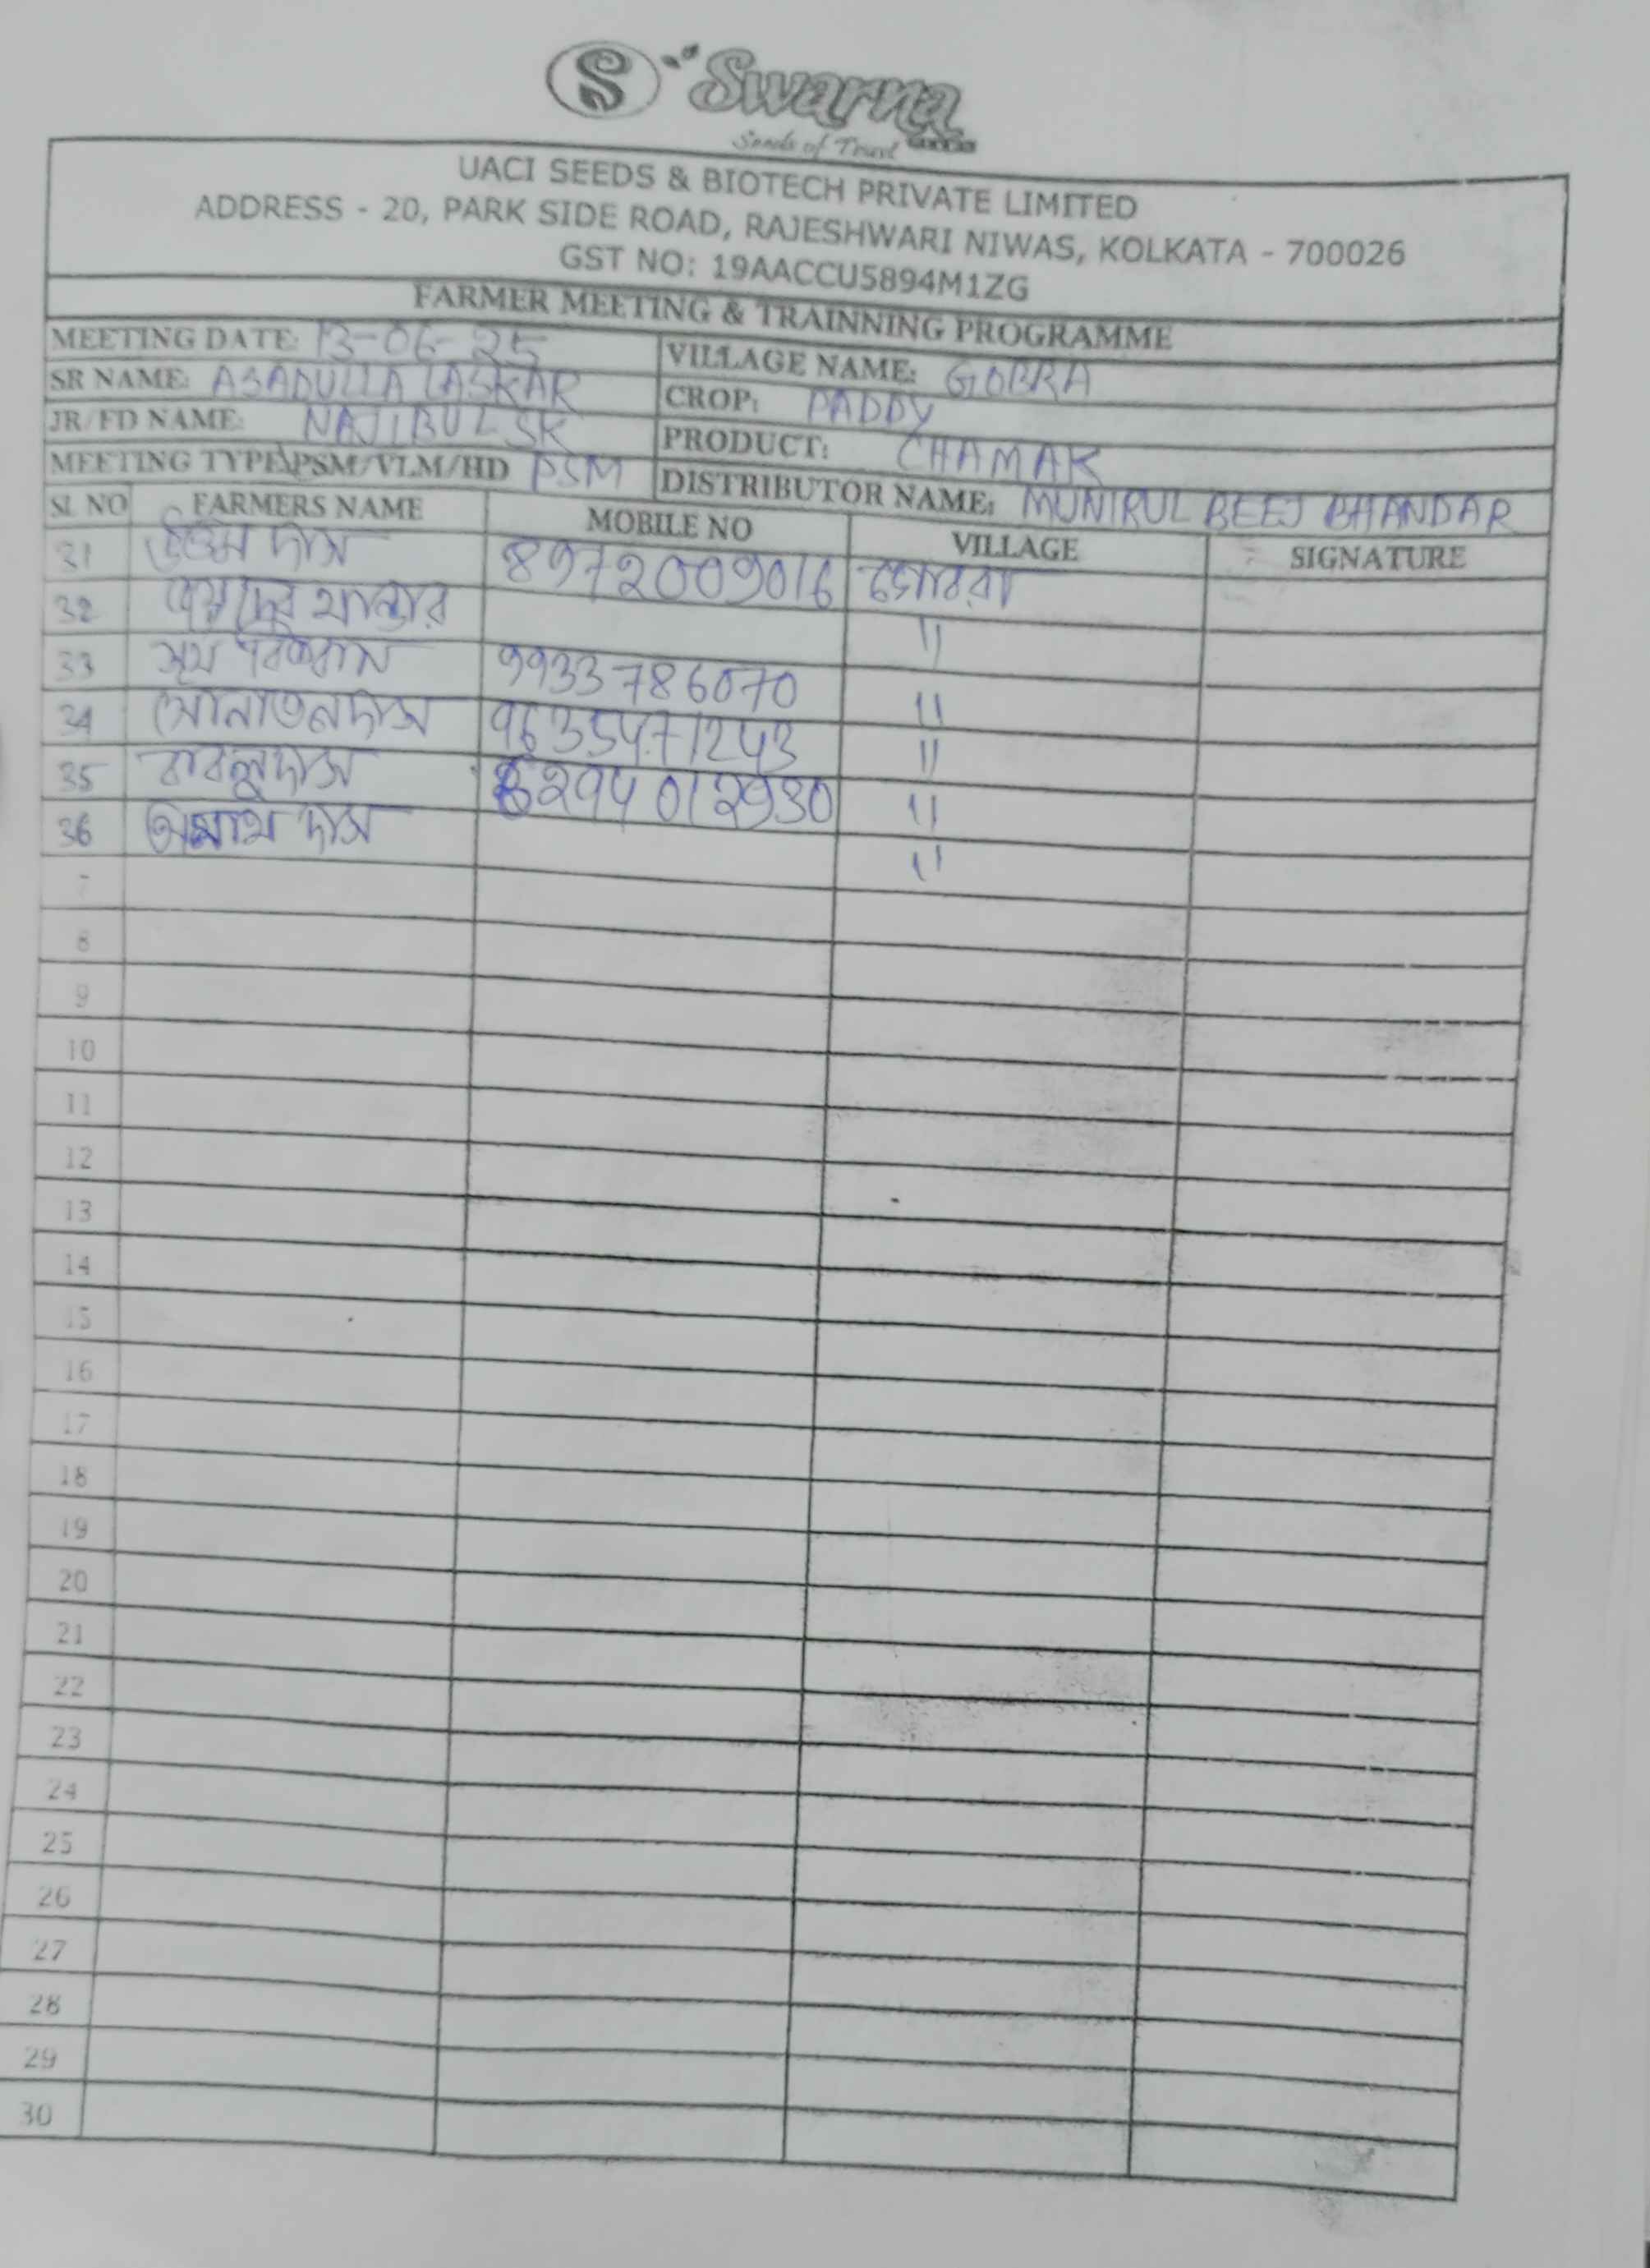 S Swarna
Seeds of Trust
UACI SEEDS & BIOTECH PRIVATE LIMITED
ADDRESS - 20, PARK SIDE ROAD, RAJESHWARI NIWAS, KOLKATA - 700026
GST NO: 19AACCU5894M1ZG
FARMER MEETING & TRAINNING PROGRAMME
MEETING DATE: 13-06-25 VILLAGE NAME: GOBRA
SR NAME: ASADULLA LASKAR CROP: PADDY
JR/FD NAME: NAJIBUL SK PRODUCT: CHAMAK
MEETING TYPE\PSM/VLM/HD PSM DISTRIBUTOR NAME: MUNIRUL BEEJ BHANDAR
SL NO FARMERS NAME MOBILE NO VILLAGE SIGNATURE
31 উত্তম দাস 8972009016 গোবরা
32 "
33 সুখ 9933786070 "
34 সোনাতন দাস 9635471243 "
35 বাবলু দাস 6294012930 "
36 দাস "
7
8
9
10
11
12
13
14
15
16
17
18
19
20
21
22
23
24
25
26
27
28
29
30